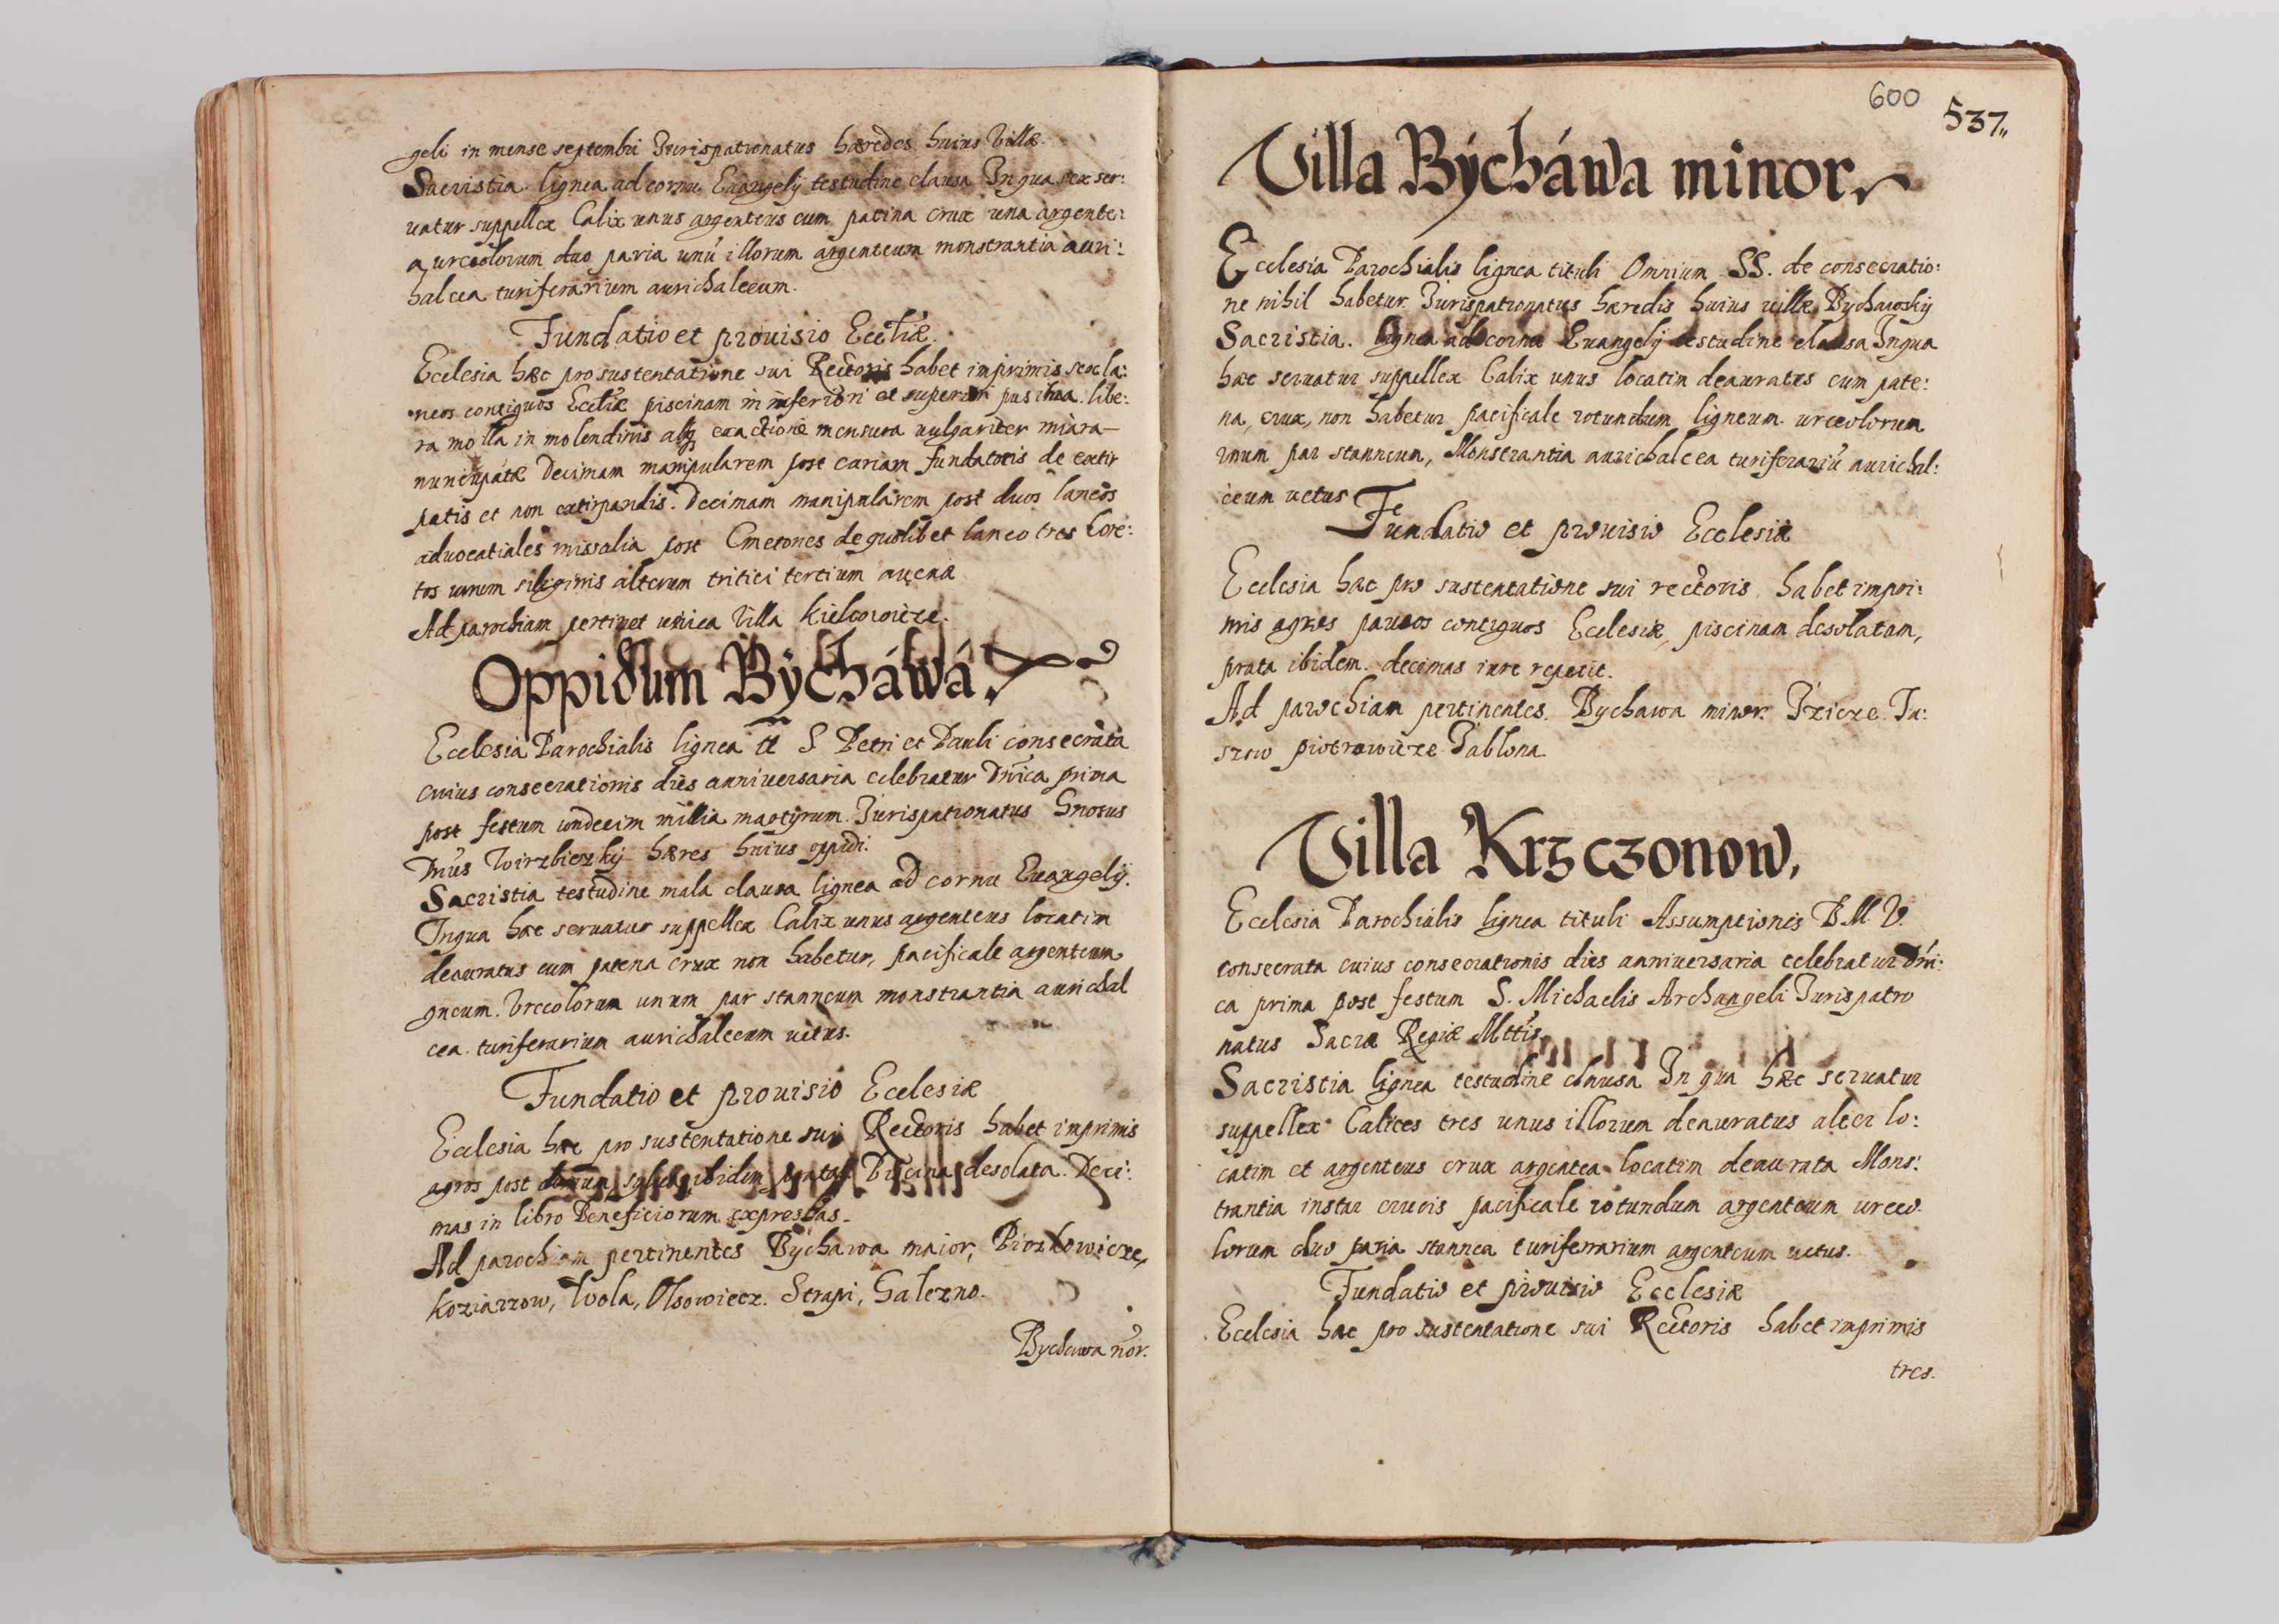 geli in mense septembri Jurispatronatus hæredes huius Villæ.
Sacristia lignea ad cornu Euangelij testudine clausa In qua hæc ser:
uatur suppellex Calix unus argenteus cum patina crux una argente:
a, urceolorum duo paria unũ illorum argenteum monstrantia auri:
halcea turiferarium aurichalceum.
Fundatio et prouisio Eccľiæ.
Ecclesia hæc pro sustentatione sui Rectoris habet imprimis sex la:
neos contiguos Eccľiæ piscinam in inferiori et superiori libe:
ra molla in molendinis absq exactione mensura uulgariter miara
nuncupatæ Decimam manipularem post curiam fundatoris de extir
patis et non extirpandis. Decimam manipularem post duos laneos
aduocatiales missalia post Cmetones de quolibet laneo tres Core:
tos unum siliginis alterum tritici tertium auenæ
Ad parochiam pertinet unica Villa Kielczowicze.
Oppidum Býcháwá.
Ecclesia Parochialis lignea tt̃ S Petri et Pauli consecrata
cuius consecrationis dies anniuersaria celebratur Dñica prima
post festum undecim millia martyrum. Jurispatronatus Gnosus
Dñus Wirzbiczkij hæres huius oppidi.
Sacristia testudine mala clausa lignea ad cornu Euangelij.
In qua hæc seruatur suppellex Calix unus argenteus locatim
deauratus cum patena crux non habetur, pacificale argenteum
gneum. Urceolorum unum par stanneum monstrantia aurichal
cea. turiferarium aurichalceum uetus.
Fundatio et prouisio Ecclesiæ
Ecclesia hæc pro sustentatione sui Rectoris habet imprimis
agros post ibidem prata. Piscina desolata. Deci:
mas in libro Beneficiorum expressas.
Ad parochiam pertinentes Býchawa maior, Piozkowicze,
Koziarzow, Wola, Olsowiecz. Strapi, Galezno.
Bychawa ñor.
600
537,,
Villa Býcháwa minor.
Ecclesia Parochialis lignea tituli Omnium SS. de consecratio:
ne nihil habetur. Jurispatronatus hæredis huius uillæ Bychawskij
Sacristia. lignea ad cornu Euangelij testudine clausa In qua
hæc seruatur suppellex Calix unus locatim deauratus cum pate:
na, crux, non habetur pacificale rotundum ligneum. urceolorum
unum par stanneum, Monstrantia aurichalcea turiferariũ aurichal:
ceum uetus
Fundatio et prouisio Ecclesiæ
Ecclesia hæc pro sustentatione sui rectoris habet impri:
mis agros paucos contiguos Ecclesiæ, piscinam desolatam,
prata ibidem. decimas iure repetit.
Ad parochiam pertinentes. Bychawa minor. Izicze. Tu:
szow piotrowicze Jablona
Villa Krzczonow,
Ecclesia Parochialis lignea tituli Assumptionis B.M.V.
consecrata cuius consecrationis dies anniuersaria celebratur Dñi:
ca prima post festum S. Michaelis Archangeli Jurispatro
natus Sacræ Regiæ Mttis.
Sacristia lignea testudine clausa In qua hæc seruatur
suppellex Calices tres unus illorum deauratus alter lo:
catim et argenteus crux argentea locatim deaurata Mons:
trantia instar crucis pacificale rotundum argenteum urceo
lorum duo paria stannea turiferrarium argenteum uetus.
Fundatio et prouisio Ecclesiæ
Ecclesia hæc pro sustentatione sui Rectoris habet imprimis
tres.